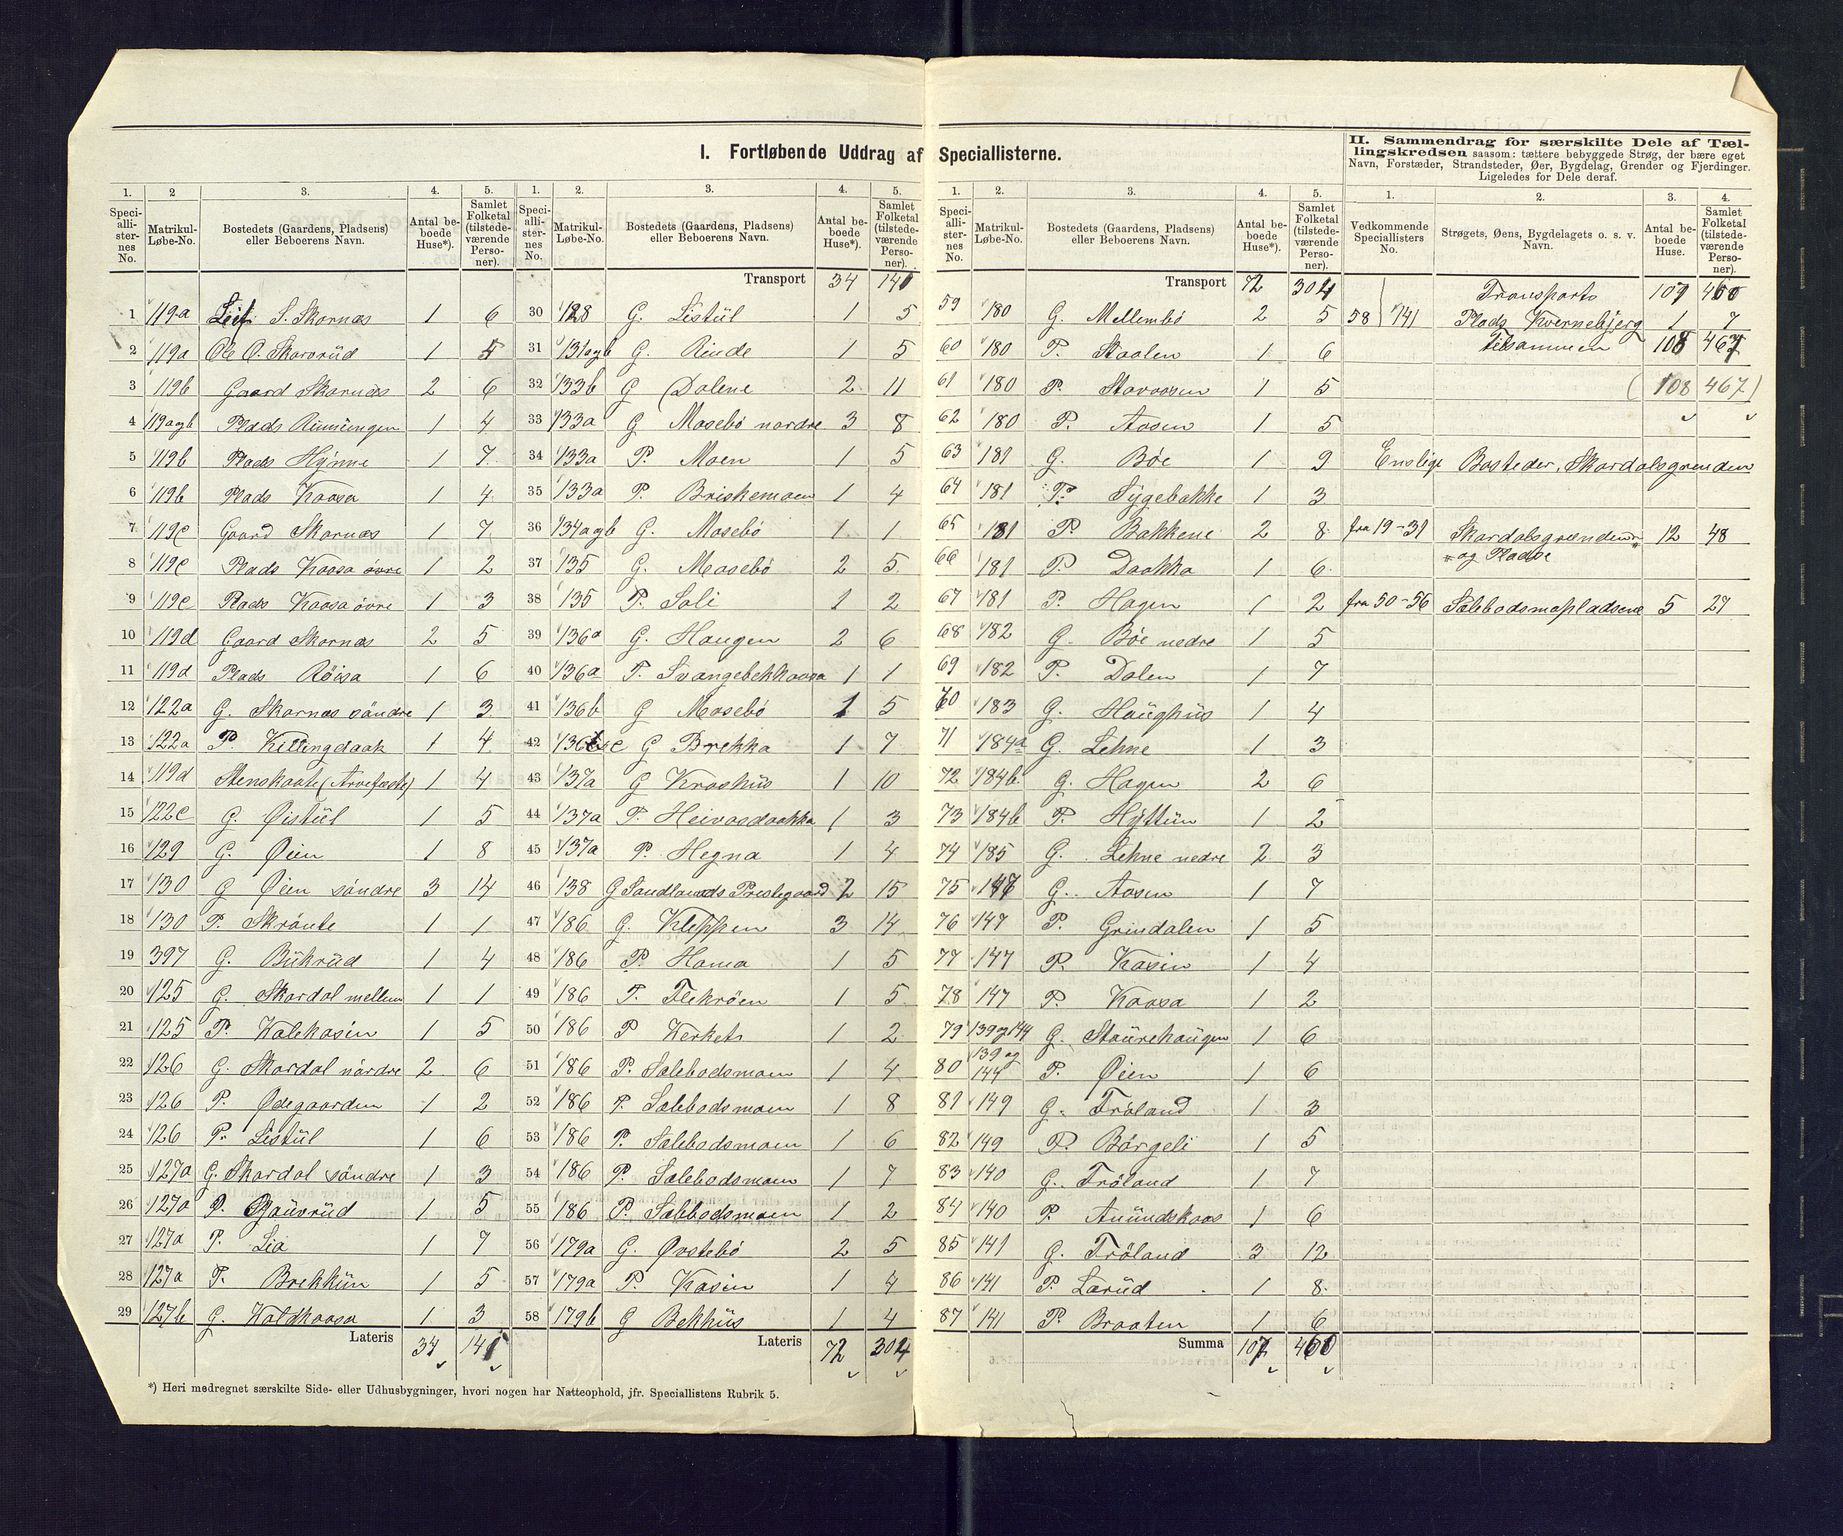 I. Fortløbende Uddrag af Speciallisterne.
1. 2 3. 4. 5.
Speciallisternes No. Matrikul-Løbe-No. Bostedets (Gaardens, Pladsens) eller Beboerens Navn. Antal beboede Huse*). Samlet Folketal (tilstedeværende Personer).
1 119a S. Skornæs 1 6
2 119a Ole O. Skovrüd 1 5
3 119b Gaard Skornæs 2 6
4 119agb Plads Rünningen 1 4
5 119b Plads Hynne 1 7
6 119b Plads Kaasa 1 4
7 119c Gaard Skornæs 1 7
8 119c Plads Kaasa övre 1 2
9 119c Plads Kaasa övre 1 3
10 119d Gaard Skornæs 2 5
11 119d Plads Röisa 1 6
12 122a G. Skornæs söndre 1 3
13 122a P. Killingdaak 1 4
14 119d Stenskaate (Arvefæste) 1 4
15 122c G. Øistül 1 5
16 129 G. Øien 1 8
17 130 G Øien söndre 3 14
18 130 P. Skrönte 1 1
19 397 G. Bükrüd 1 4
20 125 G. Skardal mellem 1 1
21 125 P. Kalekasin 1 5
22 126 G. Skardal nördre 2 6
23 126 P. Ødegaarden 1 2
24 126 P. Listül 1 6
25 127a G. Skardal söndre 1 3
26 127a P. Gaüvrüd 1 5
27 127a P. Lia 1 7
28 127a P. Brekkün 1 5
29 127b G. Kaldkaasa 1 3
Lateris 34 141
1. 2. 3. 4. 5.
Speciallisternes No. Matrikul-Løbe-No. Bostedets (Gaardens, Pladsens) eller Beboerens Navn. Antal beboede Huse*). Samlet Folketal (tilstedeværende Personer).
Transport 34 141
30 128 G. Listül 1 5
31 131agb G. Rinde 1 5
32 133b G Dalene 2 11
33 133a G Mosebö nordre 3 8
34 133a P. Moen 1 5
35 133a P. Briskemoen 1 4
36 134agb G. Mosebö 1 1
37 135 G. Mosebö 2 5
38 135 P. Sali 1 2
39 136a G. Haugen 2 6
40 136a P. Svangebekkaasa 1 1
41 136b G Mosebö 1 5
42 136c G Brekka 1 7
43 137a G Kroshüs 1 10
44 137a P. Heivasdaakka 1 3
45 137a P. Hegna 1 4
46 138 G Saudlands Prestegaard 2 15
47 186 G. Kleppen 3 14
48 186 P. Hama 1 5
49 186 P. Flekröen 1 5
50 186 P Verkets 1 2
51 186 P. Salebodsmoen 1 4
52 186 P. Salebodsmoen 1 8
53 186 P. Salebodsmoen 1 6
54 186 P. Salebodsmoen 1 7
55 186 P. Salebodsmoen 1 2
56 179a G. Øvstebö 2 5
57 179a P. Kasin 1 4
58 179b G Bekhüs 1 4
Lateris 72 304
1. 2. 3. 4. 5.
Speciallisternes No. Matrikul-Løbe-No. Bostedets (Gaardens, Pladsens) eller Beboerens Navn. Antal beboede Huse*). Samlet Folketal (tilstedeværende Personer).
Transport 72 304
59 180 G. Mellembö 2 5
60 180 P. Staalen 1 6
61 180 P. Stavaasen 1 5
62 180 P. Aasen 1 5
63 181 G. Böe 1 9
64 181 P. Sygebakke 1 3
65 181 P. Bakkene 2 8
66 181 P. Daakka 1 6
67 181 P. Hagen 1 2
68 182 G. Böe nedre 1 5
69 182 P. Dalen 1 7
70 183 G. Haüghüs 1 4
71 184a G. Lehne 1 3
72 184b G. Hagen 2 6
73 184b P. Hyttün 1 2
74 185 G. Lehne nedre 2 3
75 147 G. Aasen 1 7
76 147 P. Grindalen 1 5
77 147 P. Kasin 1 4
78 147 P. Kaasa 1 2
79 139og144 G. Staürehaügen 1 6
80 139og144 P. Øien 1 6
81 149 G. Tröland 1 3
82 149 P. Börgeli 1 5
83 140 G. Tröland 1 7
84 140 P. Anündskaas 1 6
85 141 G. Tröland 3 12
86 141 P. Larüd 1 8
87 141 P. Braaten 1 6
Summa 107 460
II. Sammendrag for særskilte Dele af Tællingskredsen saasom: tættere bebyggede Strøg, der bære eget Navn, Forstæder, Strandsteder, Øer, Bygdelag, Grender og Fjerdinger. Ligeledes for Dele deraf.
1. 2. 3. 4.
Vedkommende Speciallisters No. Strøgets, Øens, Bygdelagets o. s. v. Navn. Antal beboede Huse. Samlet Folketal (tilstedeværende Personer).
Transports 107 460
58 141 Plads Kvernebjerg 1 7
Tilsammen 108 467
(108 467)
Enslige Bosteder, Skardalsgrenden
fra 19-31 Skardalsgrenden og Pladse 12 48
fra 50-56 Salebodsmopladsene 5 27
*) Heri medregnet særskilte Side- eller Udhusbygninger, hvori nogen har Natteophold, jfr. Speciallistens Rubrik 5.